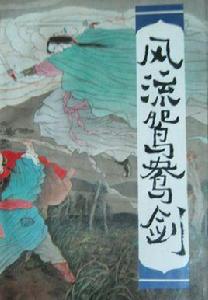 风流鸳鸯剑